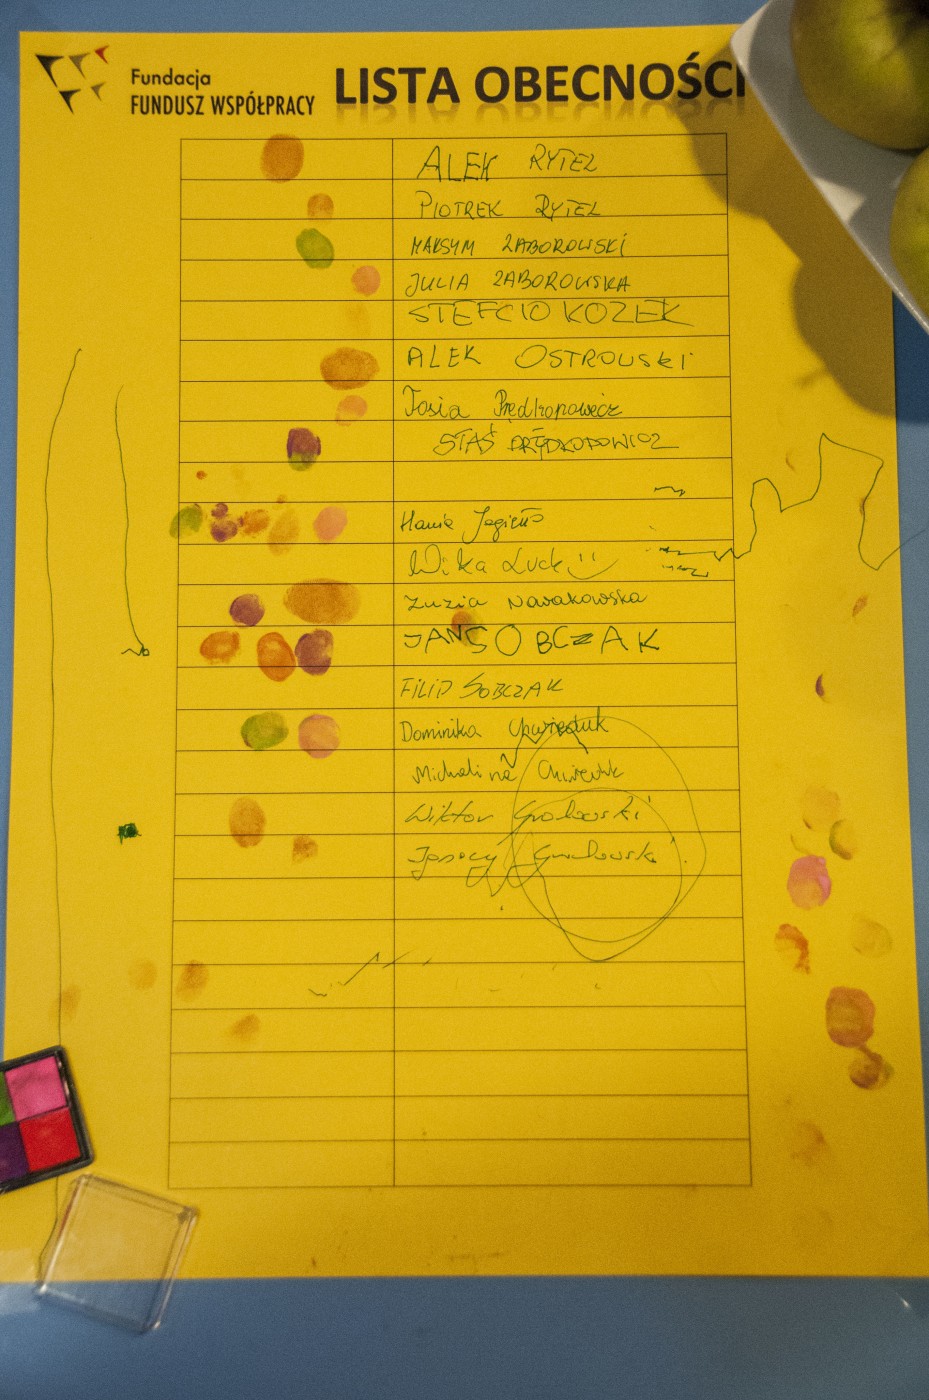 Fundacja
FUNDUSZ WSPÓŁPRACY
LISTA OBECNOŚCI
ALEK RYTEL
PIOTREK RYTEL
MAKSYM ZABOROWSKI
JULIA ZABOROWSKA
STEFCIO KOZEK
ALEK OSTROWSKI
Tosia Prędkopowicz
STAŚ PRĘDKOPOWICZ
Hania Jagiełło
Wika Luck
Zuzia Nowakowska
JAN SOBCZAK
FILIP SOBCZAK
Dominika
Michalina
Wiktor Grabowski
Ignacy Grabowski